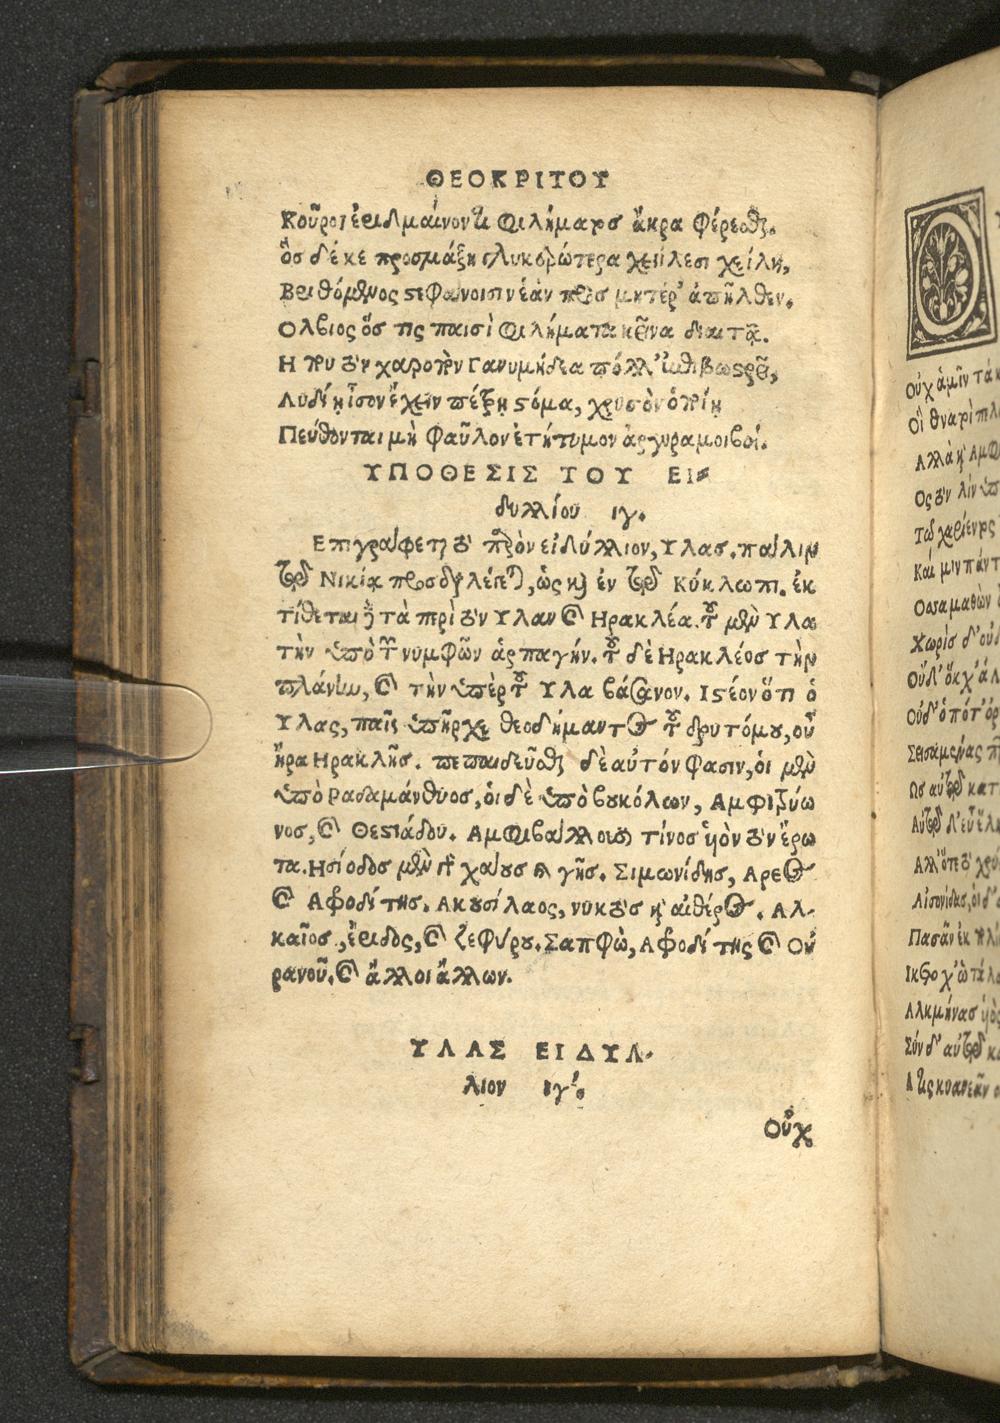 ΘΕΟΚΡΙΤΟΥ
Κοῦροι ἐριδμαίνοντι φιλήματος ἄκρα φέρεσθαι.
ὃς δέ κε προσμάξῃ γλυκερώτερα χείλεσι χείλη,
Βριθόμενος στεφάνοισιν ἑὰν πρὸς μητέρ' ἀπῆλθεν.
Ολβιος ὅς τις παισὶ φιλήματα κεῖνα διαιτᾷ.
Η που τὸν χαροπὸν Γανυμήδεα πόλλ' ἐπιβωστρεῖ,
Λυδίῃ ἶσον ἔχειν πέτρῃ στόμα, χρυσὸν ὁποίῃ
Πεύθονται μὴ φαῦλον ἐτήτυμον ἀργυραμοιβοί.
ΥΠΟΘΕΣΙΣ ΤΟΥ ΕΙ-
δυλλίου ιγ.
Επιγράφεται τὸ παρὸν εἰδύλλιον, Υλας. πάλιν
τῷ Νικίᾳ προσδιαλέγεται, ὡς καὶ ἐν τῷ Κύκλωπι. ἐκ
τίθεται δὲ τὰ περὶ τὸν Υλαν καὶ Ηρακλέα. τοῦ μὲν Υλα
τὴν ὑπὸ τῶν νυμφῶν ἁρπαγήν. τοῦ δὲ Ηρακλέος τὴν
πλάνην, καὶ τὴν ὑπὲρ τοῦ Υλα βάσανον. Ιστέον ὅτι ὁ
Υλας, παῖς ὑπῆρχε θεοδήμαντος τοῦ δρυτόμου, οὗ
ἤρα Ηρακλῆς. πεπαιδεῦσθαι δὲ αὐτόν φασιν, οἱ μὲν
ὑπὸ Ραδαμάνθυος, οἱ δὲ ὑπὸ βουκόλων, Αμφιτρύω
νος, καὶ Θεστιάδου. Αμφιβάλλουσι τίνος υἱὸν τὸν ἔρω
τα. Ησίοδος μὲν γὰρ χάους καὶ γῆς. Σιμωνίδης, Αρεος
καὶ Αφροδίτης. Ακουσίλαος, νυκτὸς καὶ αἰθέρος. Αλ-
καῖος, ἔριδος, καὶ ζεφύρου. Σαπφὼ, Αφροδίτης καὶ Οὐ
ρανοῦ. καὶ ἄλλοι ἄλλων.
ΥΛΑΣ ΕΙΔΥΛ-
λιον ιγ'.
Οὐχ
Ο
Οὐχ ἁμῖν τὰν
Οἳ θναροὶ πελ
Αλλὰ καὶ Αμφ
Ος τὸν λῖν ὑπ
Τοῦ χαρίεντος
Καί μιν πάντ
Οσσα μαθὼν
Χωρὶς δ' οὐδ
Οὐδ' ὅκχ' ἁ λ
Οὐδ' ὁπότ' ὀρ
Σεισαμένας π
Ως αὐτῷ κατ
Αὐτῷ δ' εὖ ἕλκ
Αλλ' ὅτε τὸ χρύ
Αἰσονίδας, οἱ δ'
Πασᾶν ἐκ πολί
Ικετο χ' ὡ ταλα
Αλκμήνας υἱὸς
Σὺν δ' αὐτῷ κα
Α τις κυανεᾶν